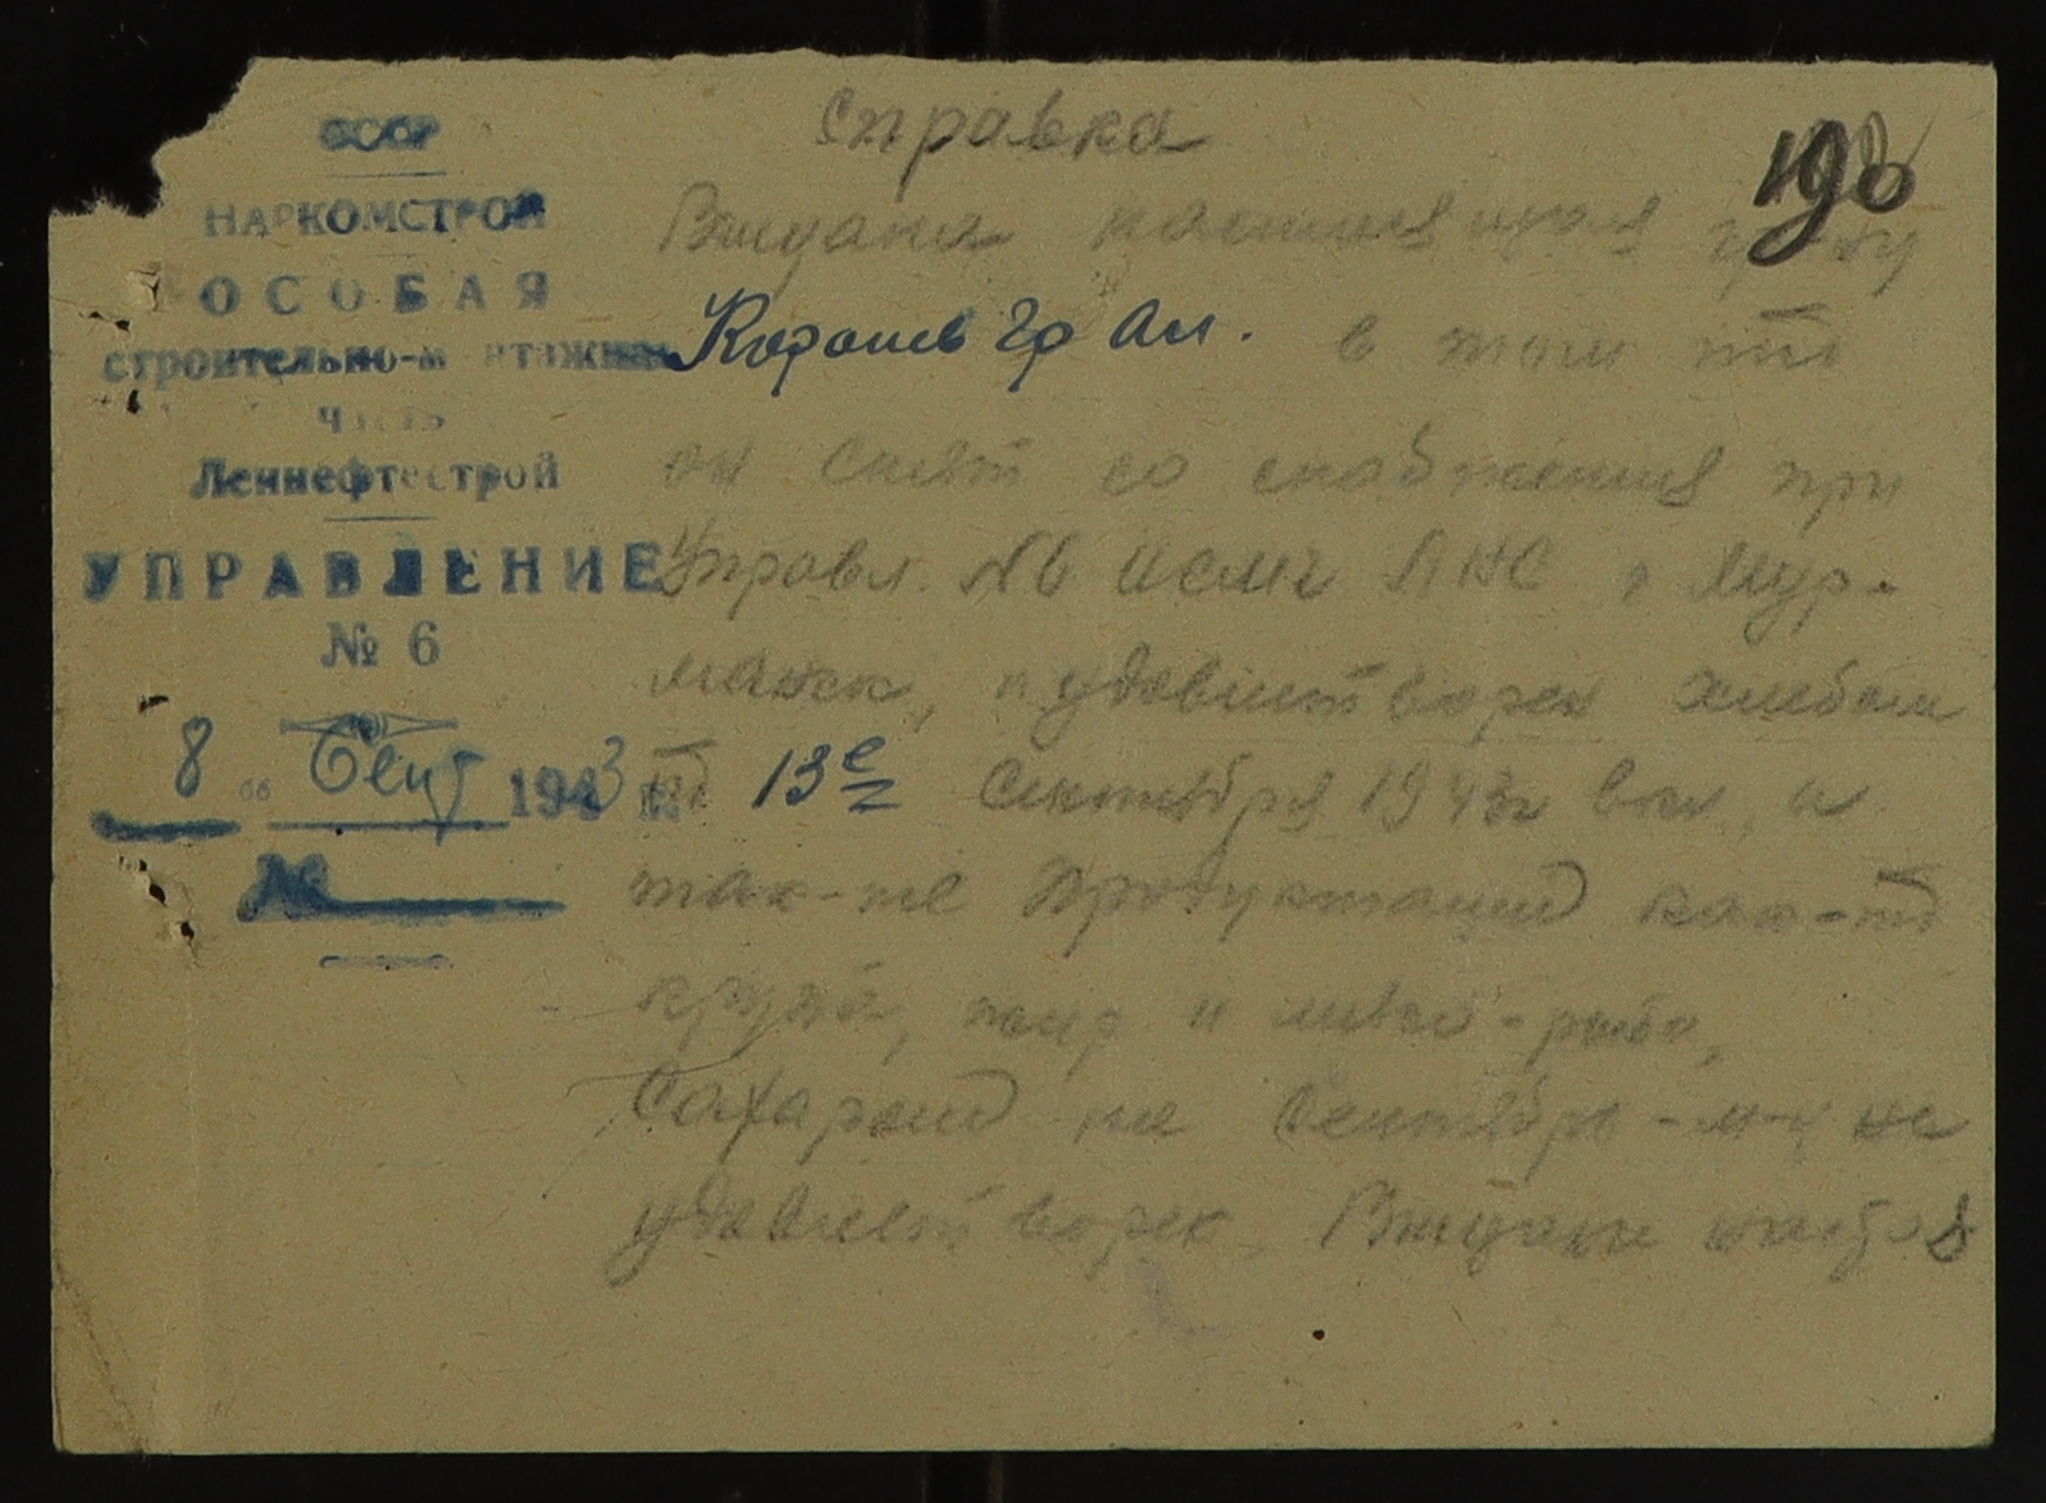 СССР
НАРКОМСТРОЙ
ОСОБАЯ
строительно-монтажная
часть
Леннефтестрой
УПРАВЛЕНИЕ
№ 6
8 Сент 1943 г.
№
190
Справка
Выдана настоящая гр-ну
в том что
он снят со снабжения при
Управл. №6 ОСМЧ ЛНС г Мур-
манск, и удовлетворен хлебом
по 13е Сентября 1943г вкл, а
так-же продуктами как-то
крупа, жир и мясо-рыба,
Сахаром на Сентябрь м-ц не
удовлетворен. Выдана